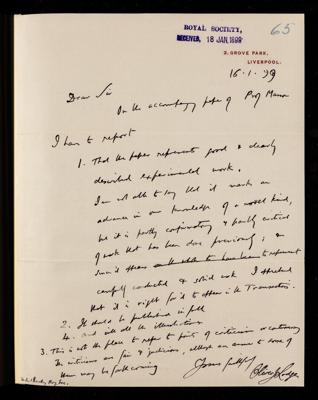 ROYAL SOCIETY,
RECEIVED, 18 JAN. 1899
65
2, GROVE PARK,
LIVERPOOL.
16.1.'99
Dear Sir
On the accompanying paper of Prof
I have to report
1. That the paper represents good & clearly
described experimental work.
I am not able to say that it marks an
advance in our knowledge of a novel kind,
but it is partly confirmatory & partly critical
of work that has been done previously; &
since it appears to represent
carefully conducted & solid work I
that it is right for it to appear in the Transactions.
2. It should be published in full
4. and with all the illustrations
3. This is not the place to refer to points of criticism or controversy
The criticisms are fair & judicious, although an answer to some of
them may be forthcoming
Yours faithfully
Oliver J Lodge